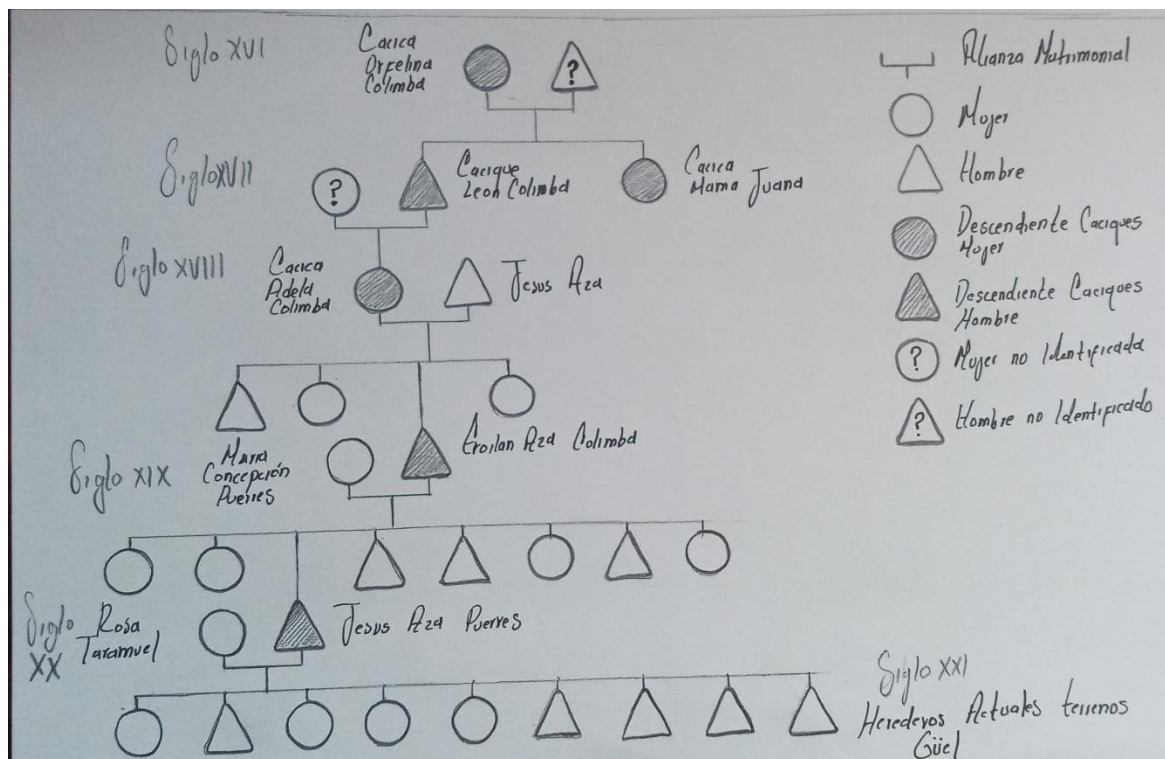 Siglo XVI
Cacica
Orfelina
Colimba
?
Siglo XVII
?
Cacique
Leon Colimba
Cacica
Mama Juana
Siglo XVIII
Cacica
Adela
Colimba
Jesus Aza
Siglo XIX
Maria
Concepción
Puerres
Eroilan Aza Colimba
Siglo
XX
Rosa
Taramuel
Jesus Aza Puerres
Siglo XXI
Herederos Actuales terrenos
Güel
Alianza Matrimonial
Mujer
Hombre
Descendiente Caciques
Mujer
Descendiente Caciques
Hombre
?
Mujer no Identificada
?
Hombre no Identificado